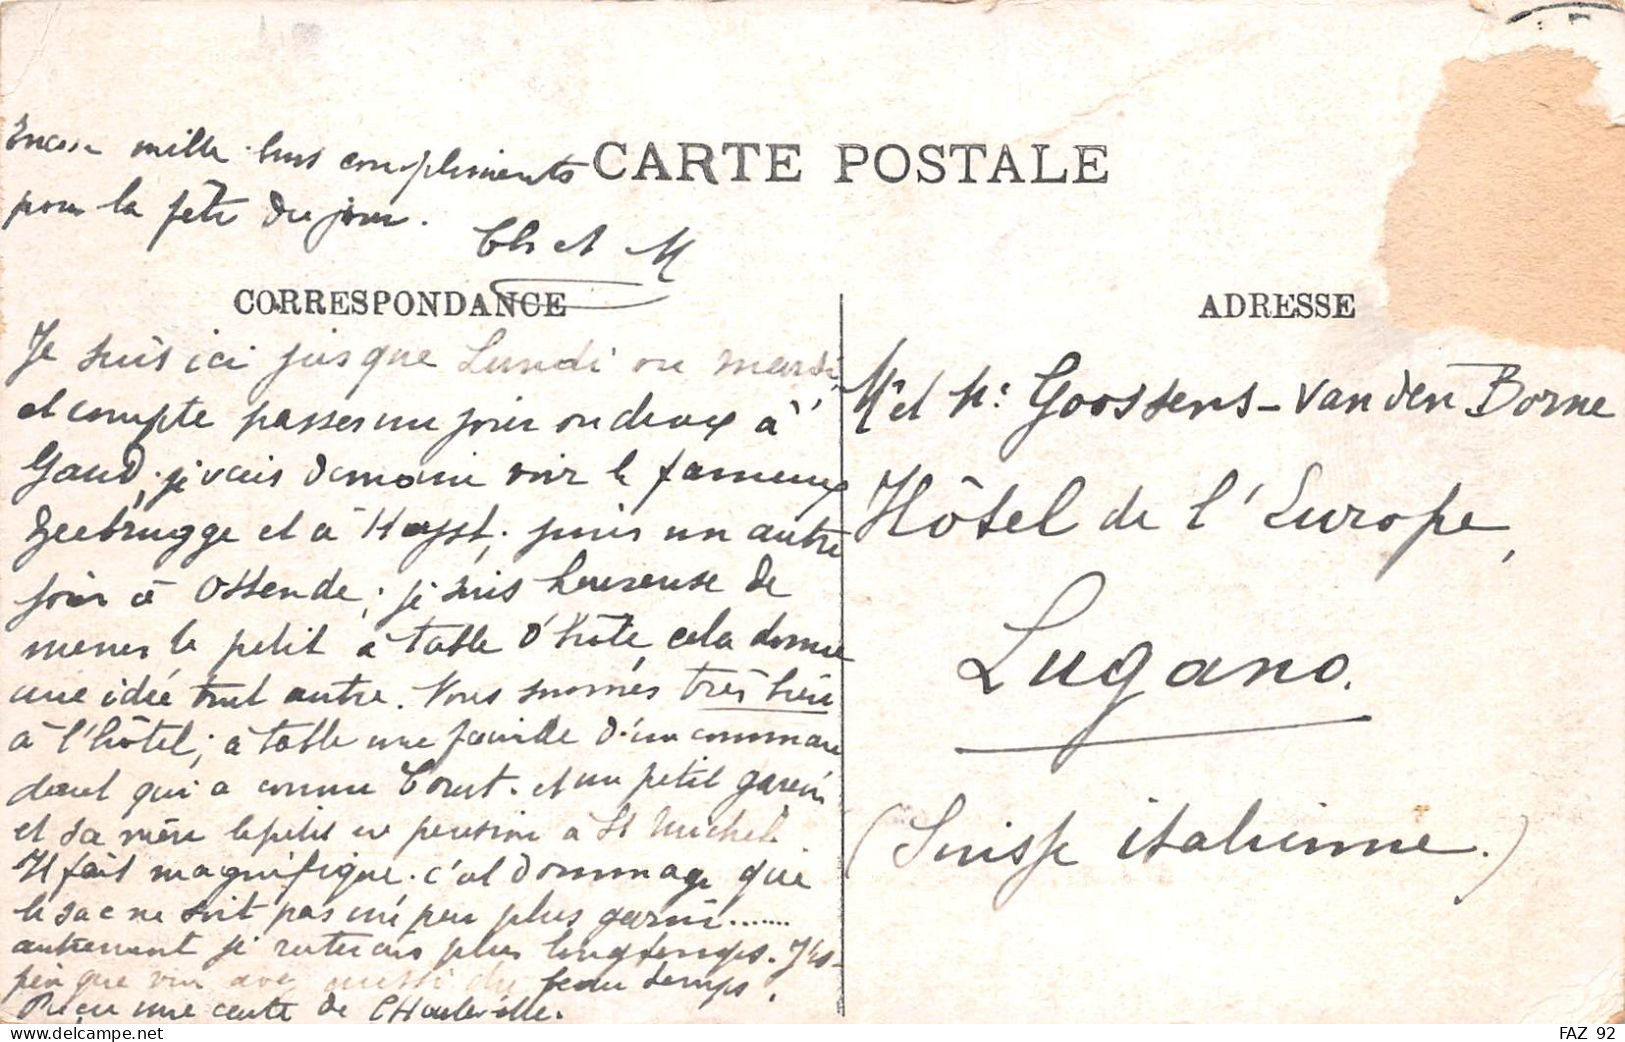 Encore mille bons compliments
pour la fête du jour.
CARTE POSTALE
Ch et M
CORRESPONDANCE
Je suis ici jusque Lundi ou mardi,
et compte passer un jour ou deux à
Gand; je vais demain voir le fameux
Zeebrugge et à Heyst; puis un autre
jour à Ostende; je suis heureuse de
mener le petit à table d'hôte, cela donne
une idée tout autre. Nous sommes très bien
à l'hôtel; à table une famille d'un comman
dant qui a connu et un petit garçon
et sa mère le petit en pension à St Michel.
Il fait magnifique. c'est dommage que
le sac ne soit pas un peu plus garni.......
autrement je resterais plus longtemps. J'es-
père que vous avez aussi du beau temps.
Reçu une carte de Charleville.
ADRESSE
Mr et Me Goossens-Van den Borne
Hôtel de l'Europe,
Lugano.
(Suisse italienne.)
FAZ 92